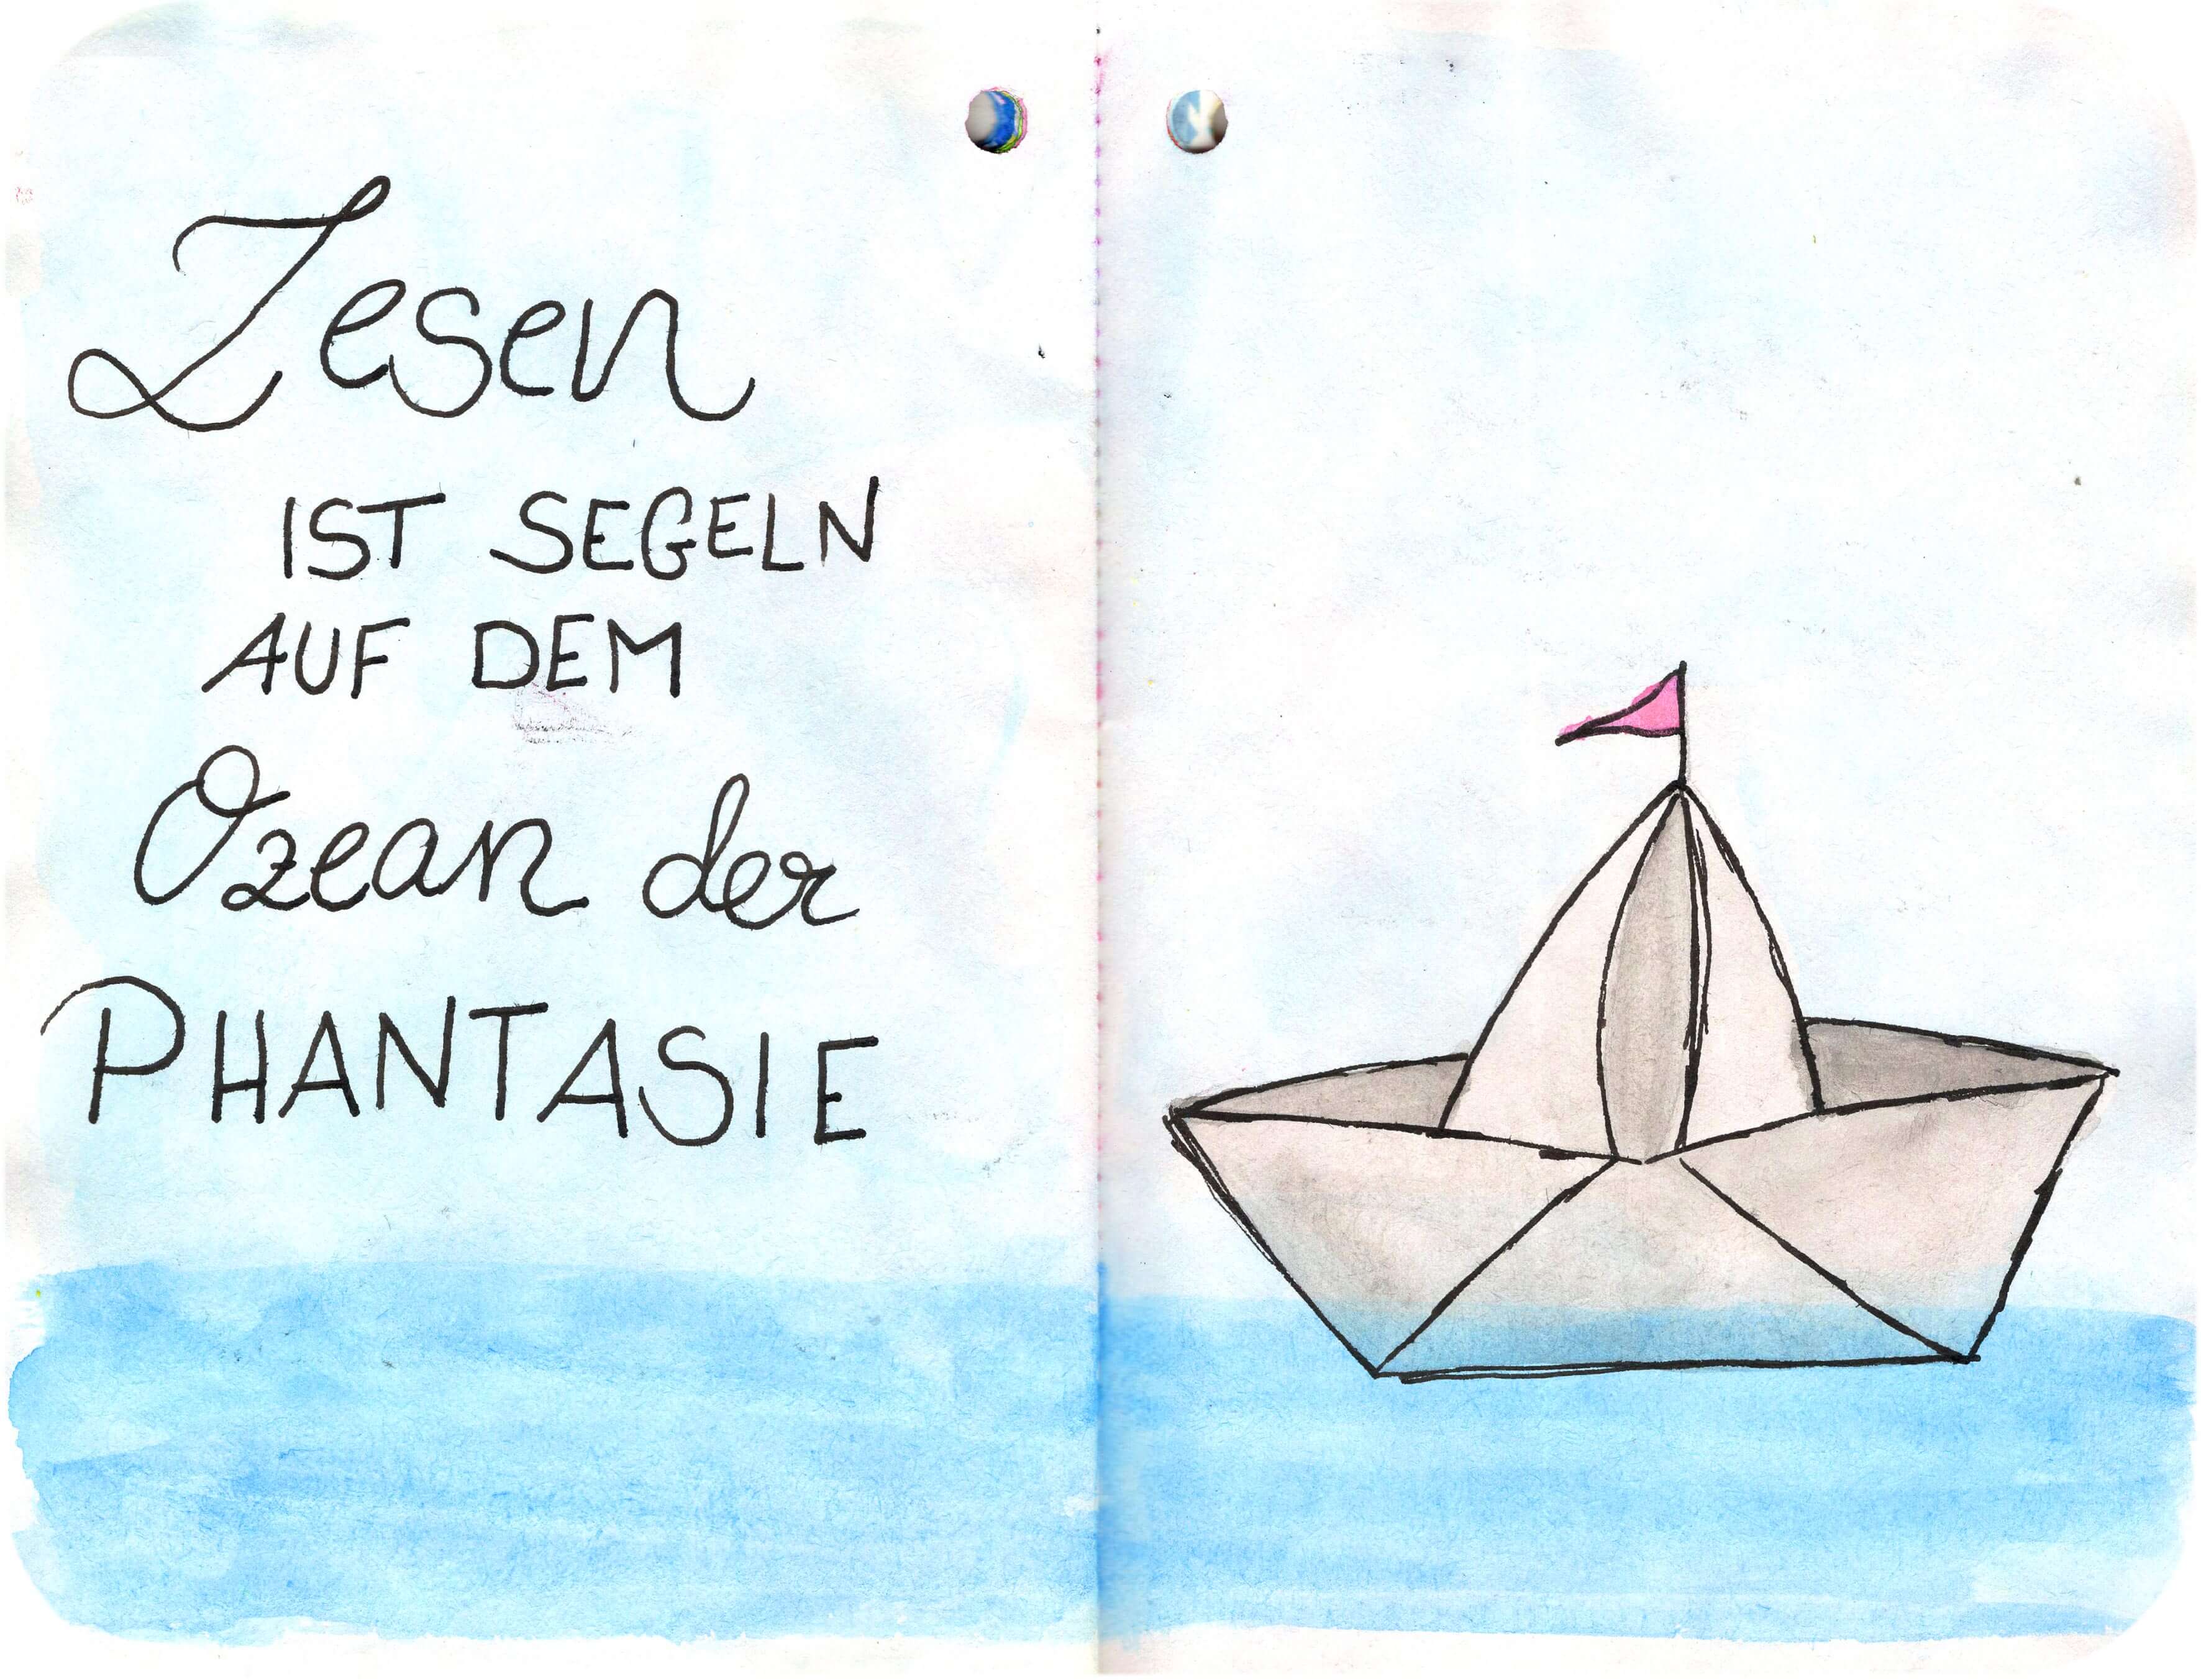 Lesen
IST SEGELN
AUF DEM
Ozean der
PHANTASIE